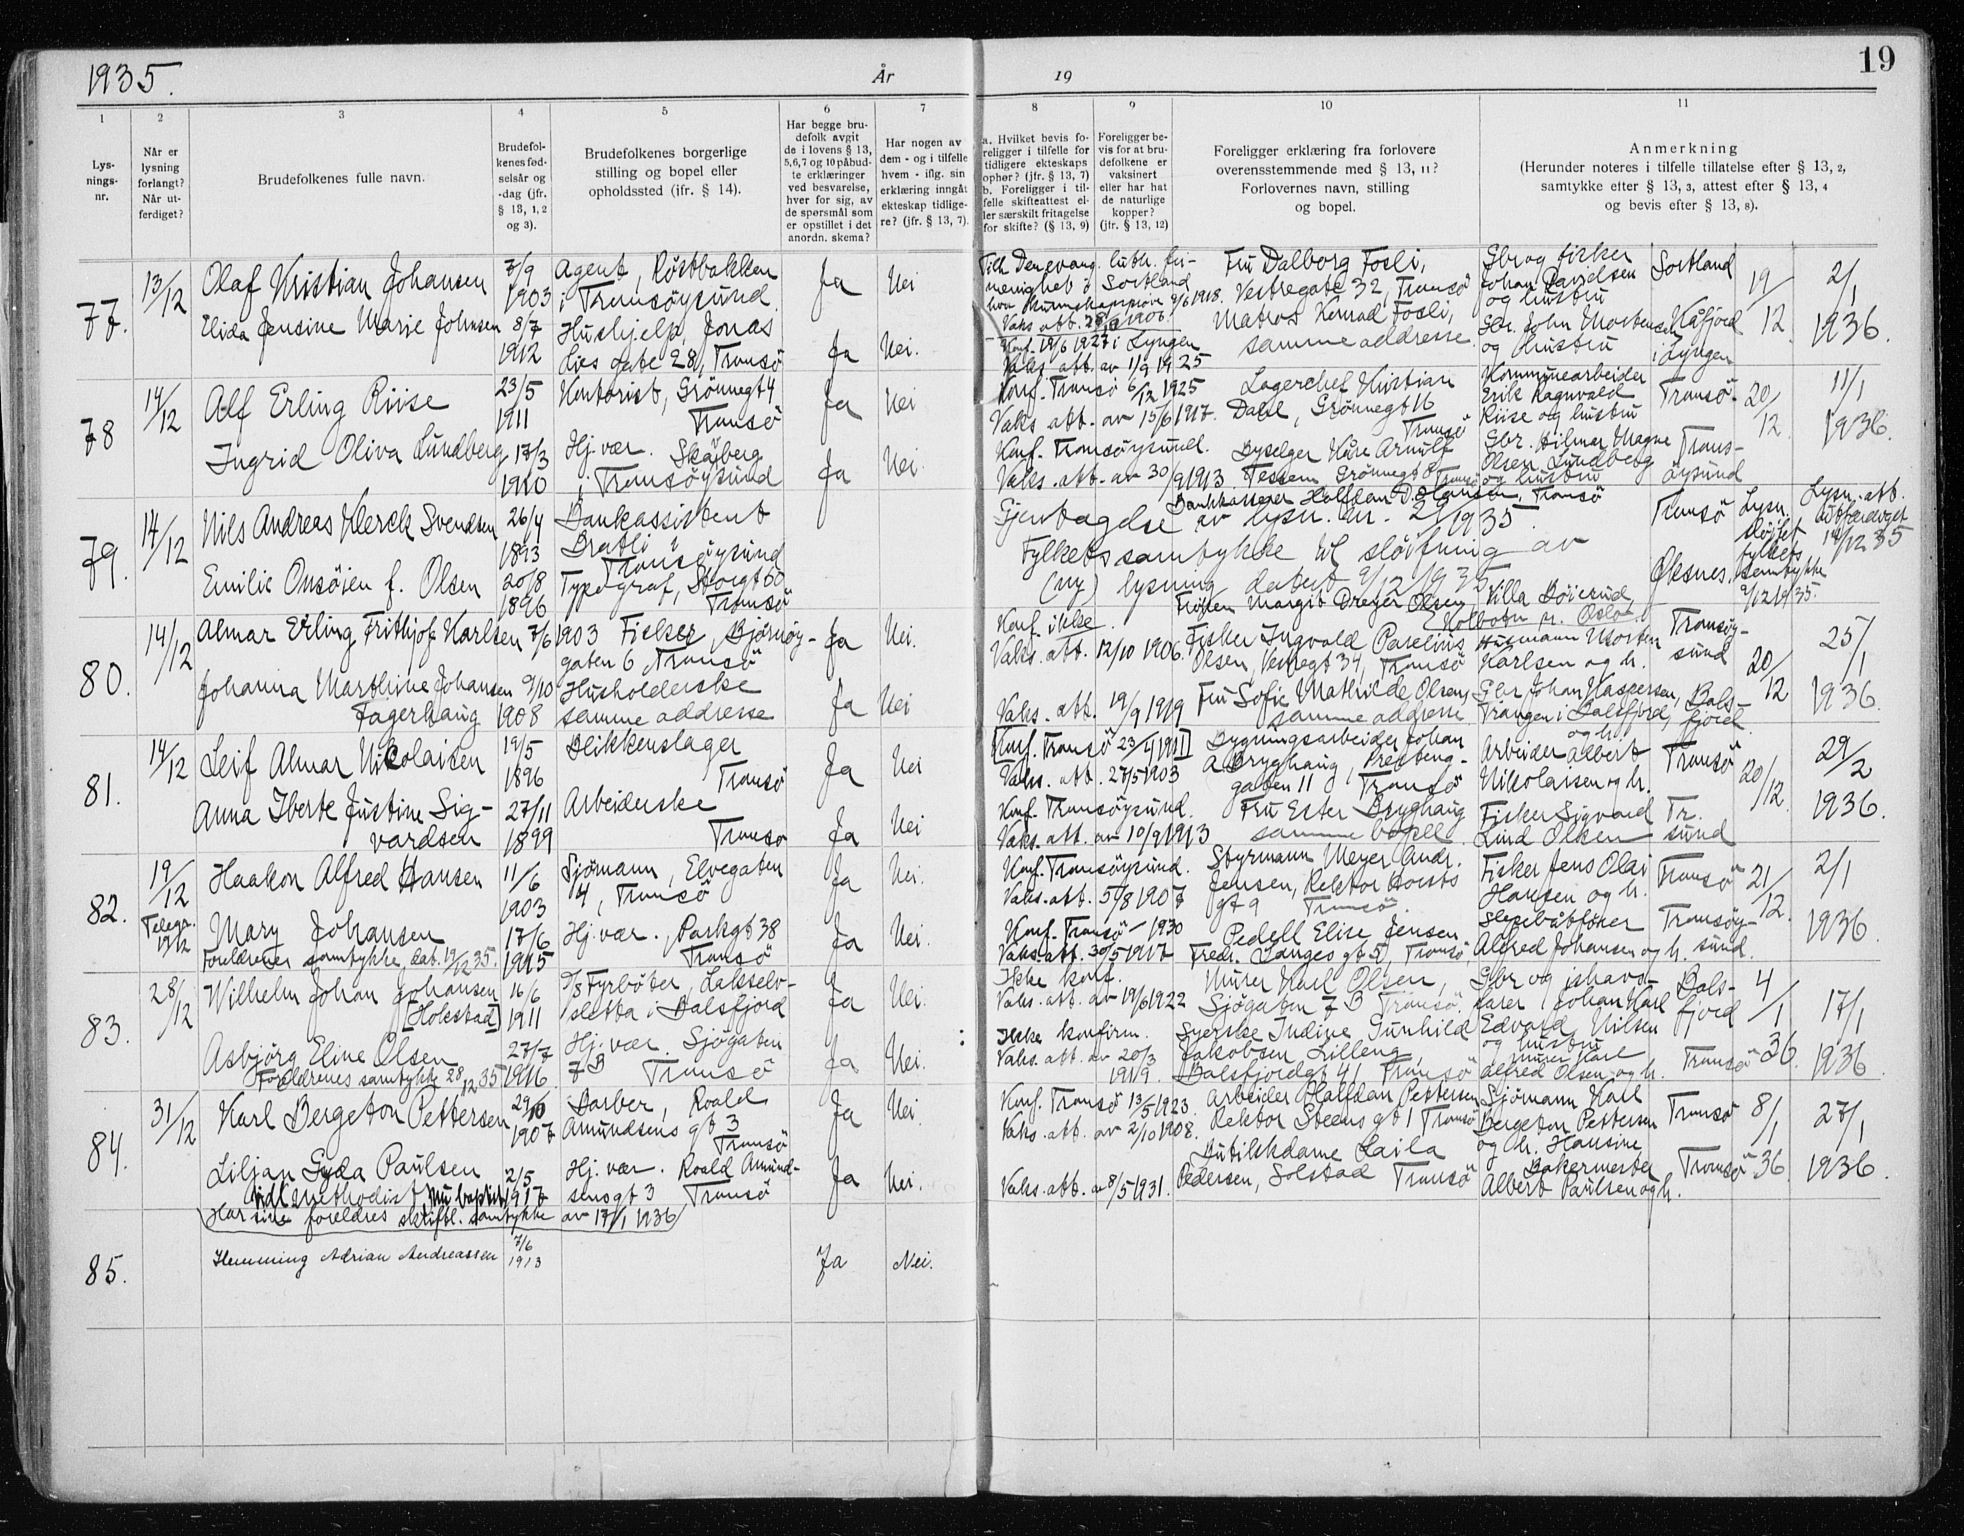 1935.
År
19
19
1
2
3
4
5
6
7
8
9
10
11
Lys-
nings-
nr.
Når er
lysning
forlangt?
Når ut-
ferdiget?
Brudefolkenes fulle navn.
Brudefol-
kenes fød-
selsår og
-dag (jfr.
§ 13, 1, 2
og 3).
Brudefolkenes borgerlige
stilling og bopel eller
opholdssted (ifr. § 14).
Har begge bru-
defolk avgit
de i lovens § 13,
5,6,7 og 10 påbud-
te erklæringer
ved besvarelse,
hver for sig, av
de spørsmål som
er opstillet i det
anordn. skema?
Har nogen av
dem - og i tilfelle
hvem - iflg. sin
erklæring inngått
ekteskap tidlige-
re? (jfr. § 13, 7).
a. Hvilket bevis fo-
religger i tilfelle for
tidligere ekteskaps
ophør? (jfr. § 13, 7)
b. Foreligger i til-
felle skifteattest el-
ler særskilt fritagelse
for skifte? (§ 13, 9)
Foreligger be-
vis for at bru-
defolkene er
vaksinert
eller har hat
de naturlige
kopper?
(jfr. § 13, 12)
Foreligger erklæring fra forlovere
overensstemmende med § 13, 11?
Forlovernes navn, stilling
og bopel.
Anmerkning
(Herunder noteres i tilfelle tillatelse efter § 13, 2,
samtykke etter § 13, 3, attest efter § 13, 4
og bevis efter § 13, 8).
77.
13/12
Olaf Kristian Johansen
7/9
1903
Agent, Röstbakken
i Tromsöysund
Ja
Nei
Den evang. luth. fri-
menighet i Sortland
Fru Dalborg Fosli,
Vestregate 32, Tromsö
Gbr og fisker
Johan Davidsen
og hustru
Sortland
19/12
2/1
1936
Elida Jensine Marie Johnsen
8/7
1912
Hushjelp, Jonas
Lies gate 28, Tromsö
Ja
Nei.
Konf. 19/6 1927 i Lyngen
Vaks att. av 11/9 1925
Matros Konrad Fosli,
samme addresse.
Gbr. John Mortensen
og hustru
Kåfjord
i Lyngen
78
14/12
Alf Erling Riise
23/5
1911
Kontorist, Grönnegt 4
Tromsö
Ja
Nei
Konf. Tromsö 6/12 1925
Vaks att. av 15/6 1917.
Lagerchef Kristian
Dahl, Grönnegt 16
Tromsö
Kommunearbeider
Erik Ragnvald
Riise og hustru
Tromsö
20/12
11/1
1936.
Ingrid Oliva Lundberg
17/3
1910
Hj. vær. Skåberg
i Tromsöysund
Ja
Nei.
Konf. Tromsöysund.
Vaks. att. av 30/9 1913
Dyselger Kåre Arnulf
Tessem Grönnegt 8 Tromsö
Gbr. Hilmar Magne
Olsen Lundberg
og hustru
Troms-
öysund
79.
14/12
Nils Andreas Klerck Svendsen
26/4
1893
Bankassistent
Bratli i
Tromsöysund
Bankkasserer Halfdan D. Hansen, Tromsö
Gjentagelse av lysn. nr. 29/1935.
Fylkets samtykke til slöifning av
(ny) lysning datert 9/12 1935
Tromsö
Lysn.
slöjfet
fylkets
samtykke
9/12 1935.
Lysn. att.
utferdiget
14/12 35
Emilie Onsöien f. Olsen
20/8
1896
Typograf, Storgt 50
Tromsö
Fröken Margit Dreyer Olsen, Villa Böiesund,
Kolbotn pr. Oslo
Öksnes.
80.
14/12
Almar Erling Frithjof Karlsen
7/6 1903
Fisker, Björnöy-
gaten 6, Tromsö
Ja
Nei.
Konf. ikke.
Vaks. att. 12/10 1906.
Fisker Ingvald Parelius
Olsen, Vestregt 34, Tromsö
Husmann Morten
Karlsen og h.
Tromsöy-
sund
20/12
25/1
1936.
Johanna Marthine Johansen
Fagerhaug
9/10
1908
Husholderske
samme addresse
Ja
Nei
Vaks. att. 19/9 1919
Fru Sofie Mathilde Olsen,
samme addresse.
Gbr. Johan Kaspersen,
Trangen i Balsfjord,
og h.
Bals-
fjord
81.
14/12
Leif Almar Nikolaisen
19/5
1896
Blikkenslager
Tromsö
Ja
Nei
[Konf. Tromsö 23/4 1911]
Vaks. att. 27/5 1903
Bygningsarbeider Johan
A Bryghaug, Presteng-
gaten 11 Tromsö
Arbeider Albert
Nikolaisen og h.
Tromsö
20/12
29/2
1936.
Anna Iberte Justine Sig-
vardsen
27/11
1899
Arbeiderske
Tromsö
Ja
Nei
Konf. Tromsöysund.
Vaks. att. av 10/9 1913
Fru Ester Bryghaug
samme bopel
Fisker Sigvard
Lind Olsen
Tr.
sund
82.
19/12
Haakon Alfred Hansen
11/6
1903
Sjömann, Elvegaten
14, Tromsö
Ja
Nei.
Konf. Tromsöysund.
Vaks. att. 5/8 1907
Styrmann Meyer Andr.
Jensen, Rektor Horsts
gt 9 Tromsö.
Fisker Jens Olai
Hansen og h.
Tromsö
21/12
2/1
1936.
Telegr.
19/12
Mary Johansen
Foreldrenes samtykke, dat. 19/12 35.
17/6
1915
Hj. vær., Parkgt 38
Tromsö
Ja
Nei.
Konf. Tromsö - 1930
Vaks. att. 30/5 1917
Pedell Elise Jensen
Fredr. Langes gt 5, Tromsö,
Alfred Johansen og h.
Tromsöy-
sund.
83.
28/12
Wilhelm Johan Johansen
[Holestad]
16/6
1911
Fyrböter, Lakselv-
sletta i Balsfjord
Ja
Nei.
Ikke konf.
Vaks. att. av 19/6 1922
Murer Karl Olsen,
Sjögaten 7 B Tromsö.
Gbr og ishavs-
farer Johan Karl
Edvard Nilsen
og hustru
Bals-
fjord
4/1
36
17/1
1936
Asbjörg Eline Olsen
Foreldrenes samtykke 28/12 35
27/7
1916
Hj. vær. Sjögaten
7 B Tromsö
Ja
Nei.
Ikke konfirm.
Vaks. att. av 20/3
1919.
Syerske Indine Gunhild
Jakobsen Lilleng,
Balsfjordgt 41 Tromsö
Murer Karl
Alfred Olsen og h.
Tromsö
84.
31/12
Karl Bergeton Pettersen
29/10
1907
Barber, Roald
Amundsens gt 3
Tromsö
Ja
Nei.
Konf. Tromsö 13/5 1923.
Vaks. att. av 2/10 1908.
Arbeider Halfdan Pettersen
Rektor Steens gt 1 Tromsö
Sjömann Karl
Bergeton Pettersen
og h. Hansine
Tromsö
8/1
36
27/1
1936
Liljan Gyda Paulsen
tidl. methodist, nu baptist
Har sine foreldres skriftl. samtykke av 17/1 1936
2/5
1917
Hj. vær. Roald Amund-
sensgt 3 Tromsö
Ja
Nei.
Vaks. att. av 8/5 1931.
Butikkdame Laila
Pedersen, Solstad Tromsö
Bakermester
Albert Paulsen og h.
Tromsö
85.
Hemming Adrian Andreassen
7/6
1913
Ja
Nei.